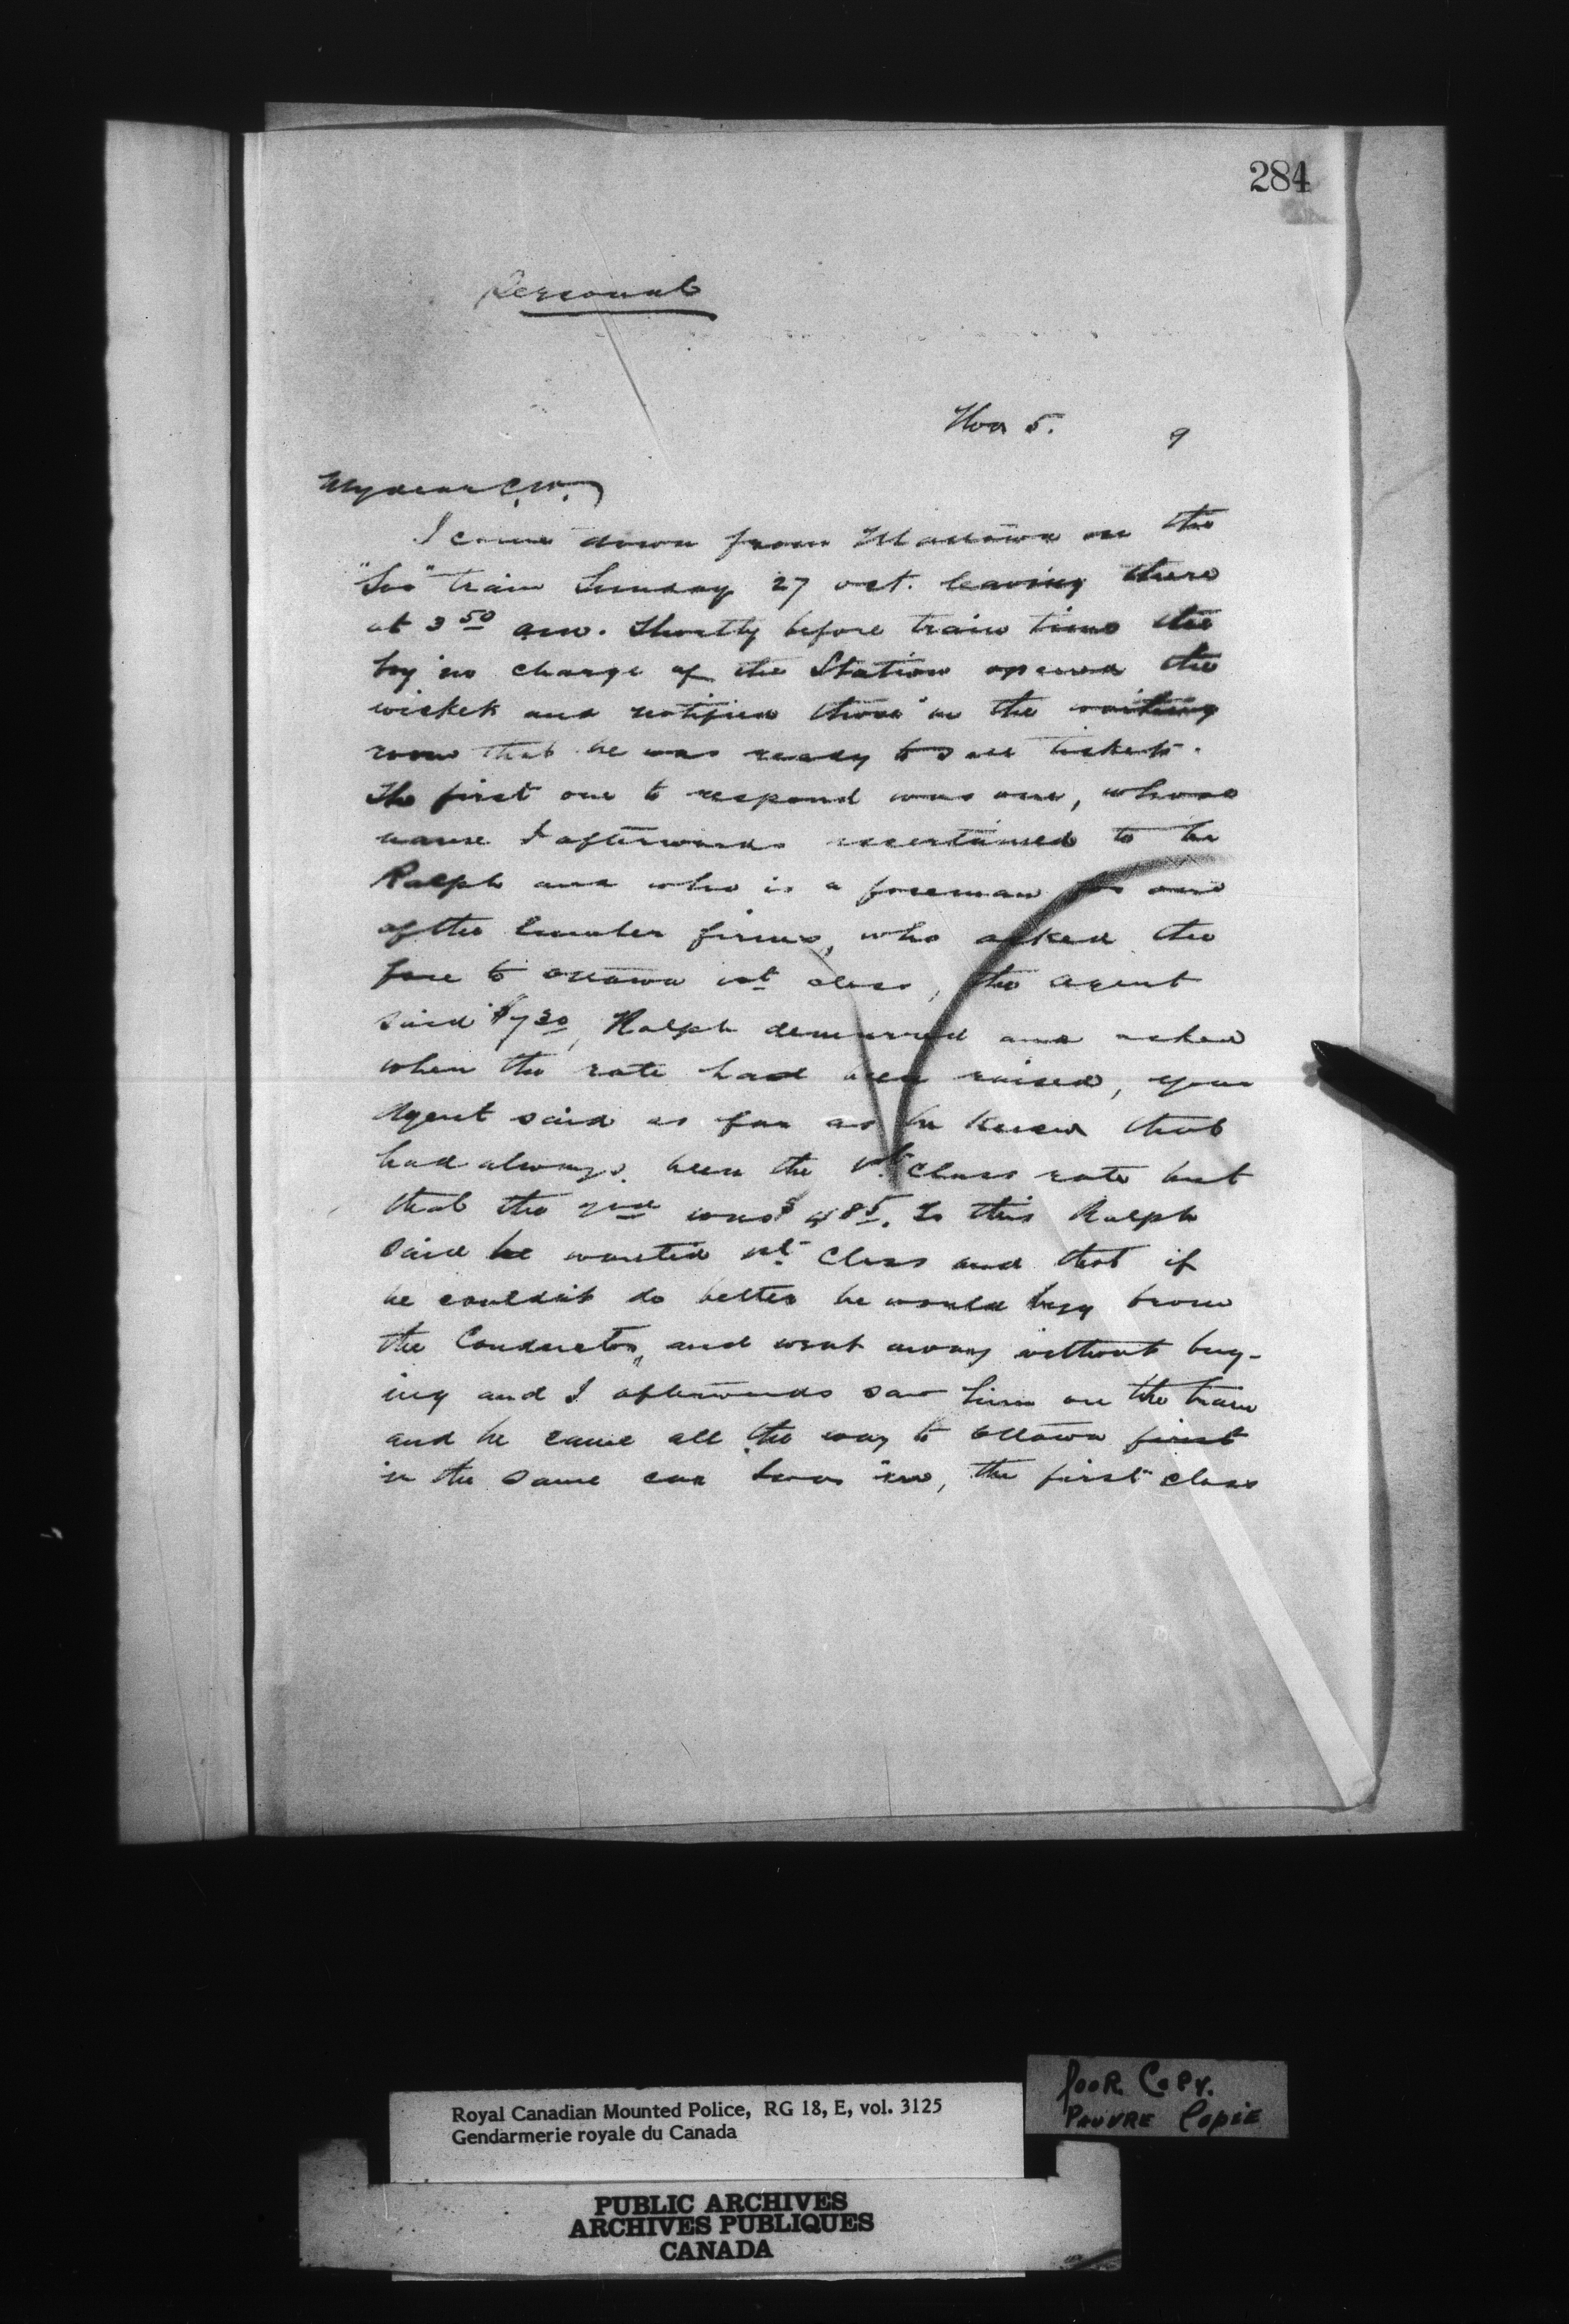 284
Personal
Nov 5. 9
My dear C.W.
I came down from Mattawa on the
"Soo" train Sunday 27 Oct. leaving there
at 3 50 a.m. Shortly before train time the
boy in charge of the Station opened the
wicket and notified those in the waiting
room that he was ready to sell tickets.
The first one to respond was one, whose
name I afterwards ascertained to be
Ralph and who is a foreman for one
of the lumber firms, who asked the
fare to Ottawa 1st class, the agent
said $7 30, Ralph demurred and asked
when the rate had been raised, your
Agent said as far as he knew that
had always been the 1st Class rate but
that the 2nd was $4 85. To this Ralph
said he wanted 1st Class and that if
he couldnt do better he would buy from
the Conductor, and went away without buy-
ing and I afterwards saw him on the train
and he came all the way to Ottawa first
in the same car I was in, the first class
Royal Canadian Mounted Police, RG 18, E, vol. 3125
Gendarmerie royale du Canada
Poor Copy.
Pauvre Copie
PUBLIC ARCHIVES
ARCHIVES PUBLIQUES
CANADA